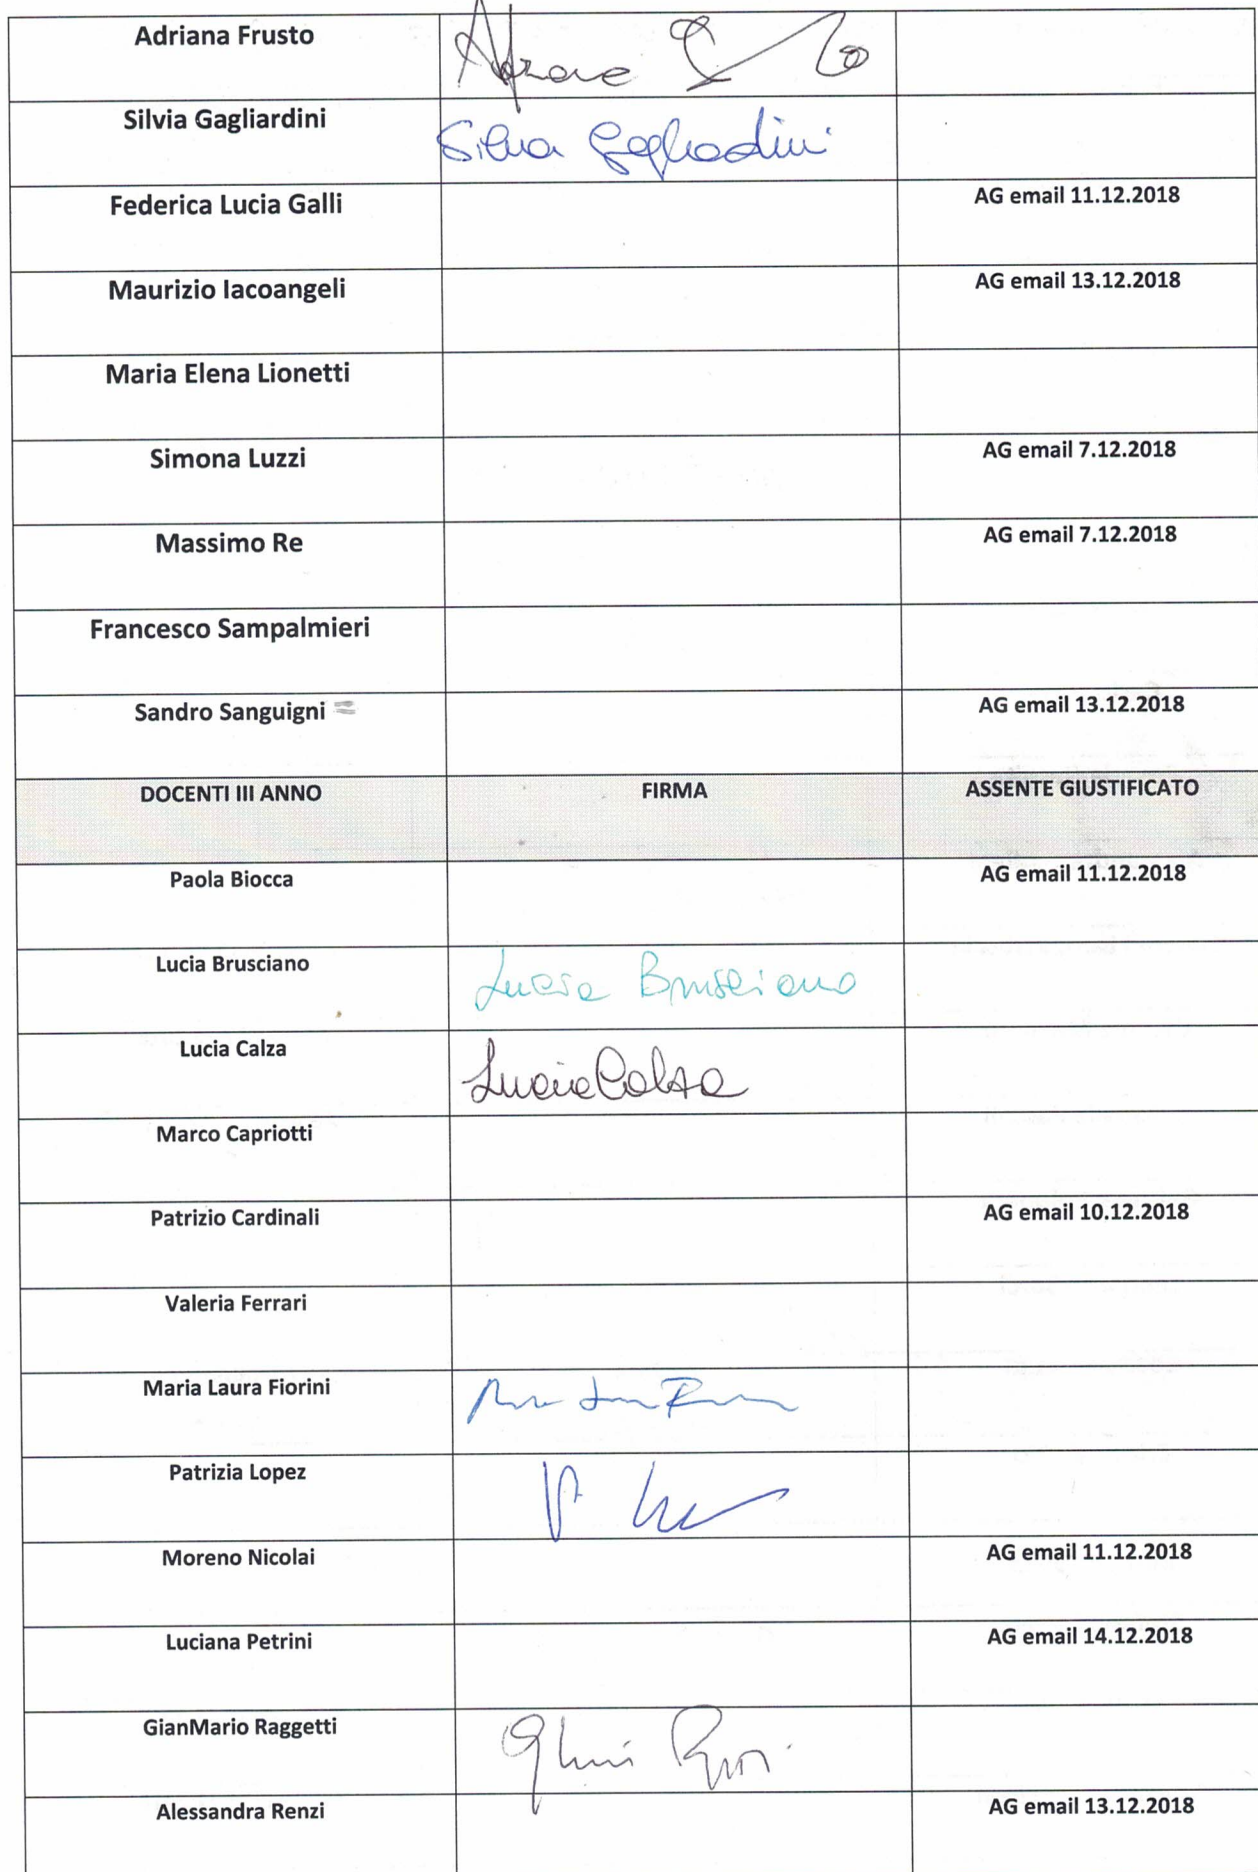 Adriana Frusto
Silvia Gagliardini Silvia Gagliardini
Federica Lucia Galli AG email 11.12.2018
Maurizio Iacoangeli AG email 13.12.2018
Maria Elena Lionetti
Simona Luzzi AG email 7.12.2018
Massimo Re AG email 7.12.2018
Francesco Sampalmieri
Sandro Sanguigni = AG email 13.12.2018
DOCENTI III ANNO FIRMA ASSENTE GIUSTIFICATO
Paola Biocca AG email 11.12.2018
Lucia Brusciano Lucia Brusciano
Lucia Calza Lucia Calza
Marco Capriotti
Patrizio Cardinali AG email 10.12.2018
Valeria Ferrari
Maria Laura Fiorini
Patrizia Lopez
Moreno Nicolai AG email 11.12.2018
Luciana Petrini AG email 14.12.2018
GianMario Raggetti
Alessandra Renzi AG email 13.12.2018